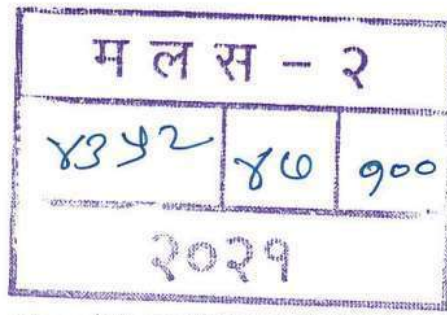 म ल स - २
४३५२ ४७ १००
२०२१